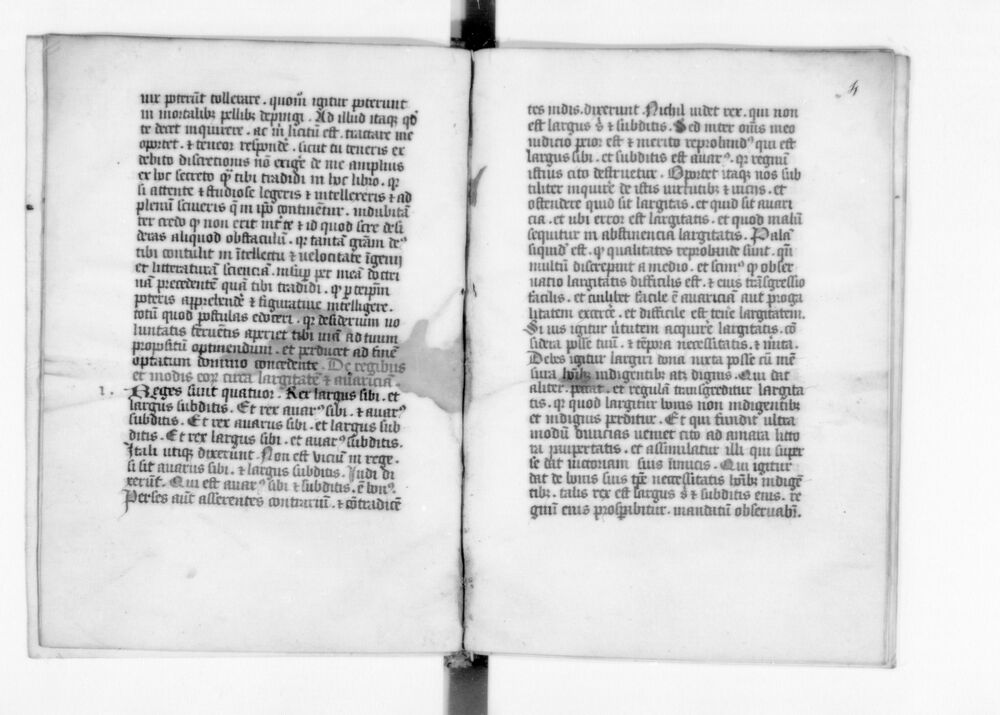 uix poterūt tollerare . quom̄ igitur poterunt
in mortalibꝫ pellibꝫ depingi . Ad illud itaqꝫ qđ
te decet inquirere . ac m̄ licitū est . tractare me
oportet . ⁊ teneor respondē . sicut tu teneris ex
debito discretionis nō exigē de me amplius
ex hoc secreto qͣ tibi tradidi in hoc libro . qꝛ
si attente ⁊ studiose legeris ⁊ intellexeris ⁊ ad
plenū sciueris q̄ in ip̄o continētur . indubitā
ter credo ꝙ non erit int̄ te ⁊ id quod scire desi
deras aliquod obstaculū . qꝛ tantā gr̄am deꝰ
tibi contulit in ītellectu ⁊ uelocitate īgenij
et litteraturā scienciā . insup̲ per meā doctri
nā precedentē quā tibi tradidi . ꝙ ꝑ teip̄m
poteris apprehendē ⁊ figuratiue intelligere .
totū quod postulas edoceri . qꝛ desideriū uo
luntatis feruētis aperiet tibi uiā ad tuum
propositū optinendum . et perducet ad finē
optatum domino concedente . De regibus
et modis eoꝝ circa largitatē ⁊ auariciā .
1 . Reges sunt quatuor . Rex largus sibi . et
largus subditis . Et rex auarꝰ sibi . ⁊ auarꝰ
subditis . Et rex auarus sibi . et largus sub
ditis . Et rex largus sibi . et auarꝰ subditis .
Itali utiqꝫ dixerunt . Non est viciū in rege .
si sit auarus sibi . ⁊ largus subditis . Indi di
xerūt . Qui est auarꝰ sibi ⁊ subditis . ē bonꝰ .
Perses aūt asserentes contrariū . ⁊ cōtradicē
tes indis . dixerunt . Nichil ualet rex . qui non
est largus s̄ ⁊ subditis . Sed inter om̄s meo
iudicio peior est ⁊ merito reprobandꝰ qui est
largus sibi . et subditis est auarꝰ . qꝛ regnū
istius cito destruetur . Oportet itaqꝫ nos sub
tiliter inquirē de istis uirtutibꝫ ⁊ uiciis . et
ostendere quid sit largitas . et quid sit auari
cia . et ubi error est largitatis . et quod malū
sequitur in abstinencia largitatis . Palā
siquidē est . ꝙ qualitates reprobande sunt . qn̄
multū discrepāt a medio . et scimꝰ ꝙ obser
uatio largitatis difficilis est . ⁊ eius trāsgressio
facilis . et cuilibet facile ē auariciā aut proga
litatem exercē . et difficile est tenē largitatem .
Si uis igitur uirtutem acquirē largitatis . cō
sidera posse tuū . ⁊ tēpora necessitatis . ⁊ mita .
Debes igitur largiri dona iuxta posse cū mē
sura hoībꝫ indigentibꝫ atqꝫ dignis . Qui dat
aliter . peccat . et regulā transgreditur largita
tis . qꝛ quod largitur bonis non indigentibꝫ
et indignis perditur . Et qui fundit ultra
modū diuicias ueniet cito ad amara litto
ra paupertatis . et assimilatur illi qui super
se dat uictoriam suis īimicis . Qui igitur
dat de bonis suis tp̄e necessitatis hoībꝫ indigē
tibꝫ . talis rex est largus s̄ ⁊ subditis eius . re
gnū eius prosperabitur . mandatū obseruabīt̄ .